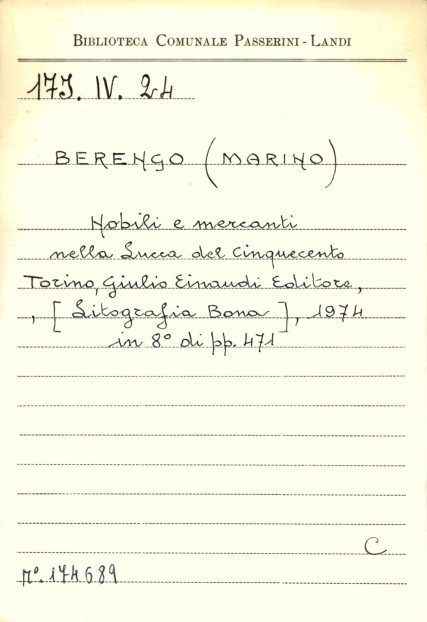 BIBLIOTECA COMUNALE PASSERINI - LANDI
17J. IV. 24
BERENGO (MARINO)
Nobili e mercanti
nella Lucca del Cinquecento
Torino, Giulio Einaudi Editore,
, [Litografia Bona], 1974
in 8° di pp. 471
C
N°. 174689